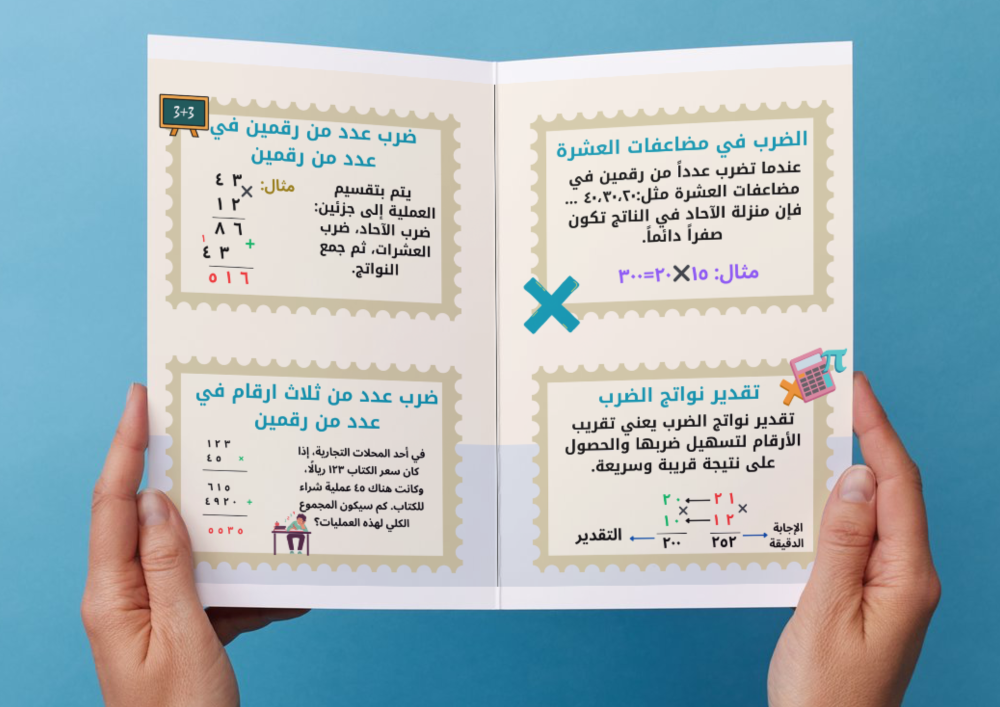 الضرب في مضاعفات العشرة
عندما تضرب عدداً من رقمين في
مضاعفات العشرة مثل:٤٠،٣٠،٢٠ ...
فإن منزلة الآحاد في الناتج تكون
صفراً دائماً.
مثال: ١٥×٢٠=٣٠٠
تقدير نواتج الضرب
تقدير نواتج الضرب يعني تقريب
الأرقام لتسهيل ضربها والحصول
على نتيجة قريبة وسريعة.
٢٠ ← ٢١
× ×
١٠ ← ١٢
التقدير ← ٢٠٠ ٢٥٢ → الإجابة الدقيقة
3+3
ضرب عدد من رقمين في
عدد من رقمين
يتم بتقسيم
العملية إلى جزئين:
ضرب الآحاد، ضرب
العشرات، ثم جمع
النواتج.
مثال:
٤٣
×
١٢
٨٦
+
١
٤٣
٥١٦
ضرب عدد من ثلاث ارقام في
عدد من رقمين
في أحد المحلات التجارية، إذا
كان سعر الكتاب ١٢٣ ريالًا،
وكانت هناك ٤٥ عملية شراء
للكتاب. كم سيكون المجموع
الكلي لهذه العمليات؟
١٢٣
٤٥ ×
٦١٥
٤٩٢٠ +
٥٥٣٥